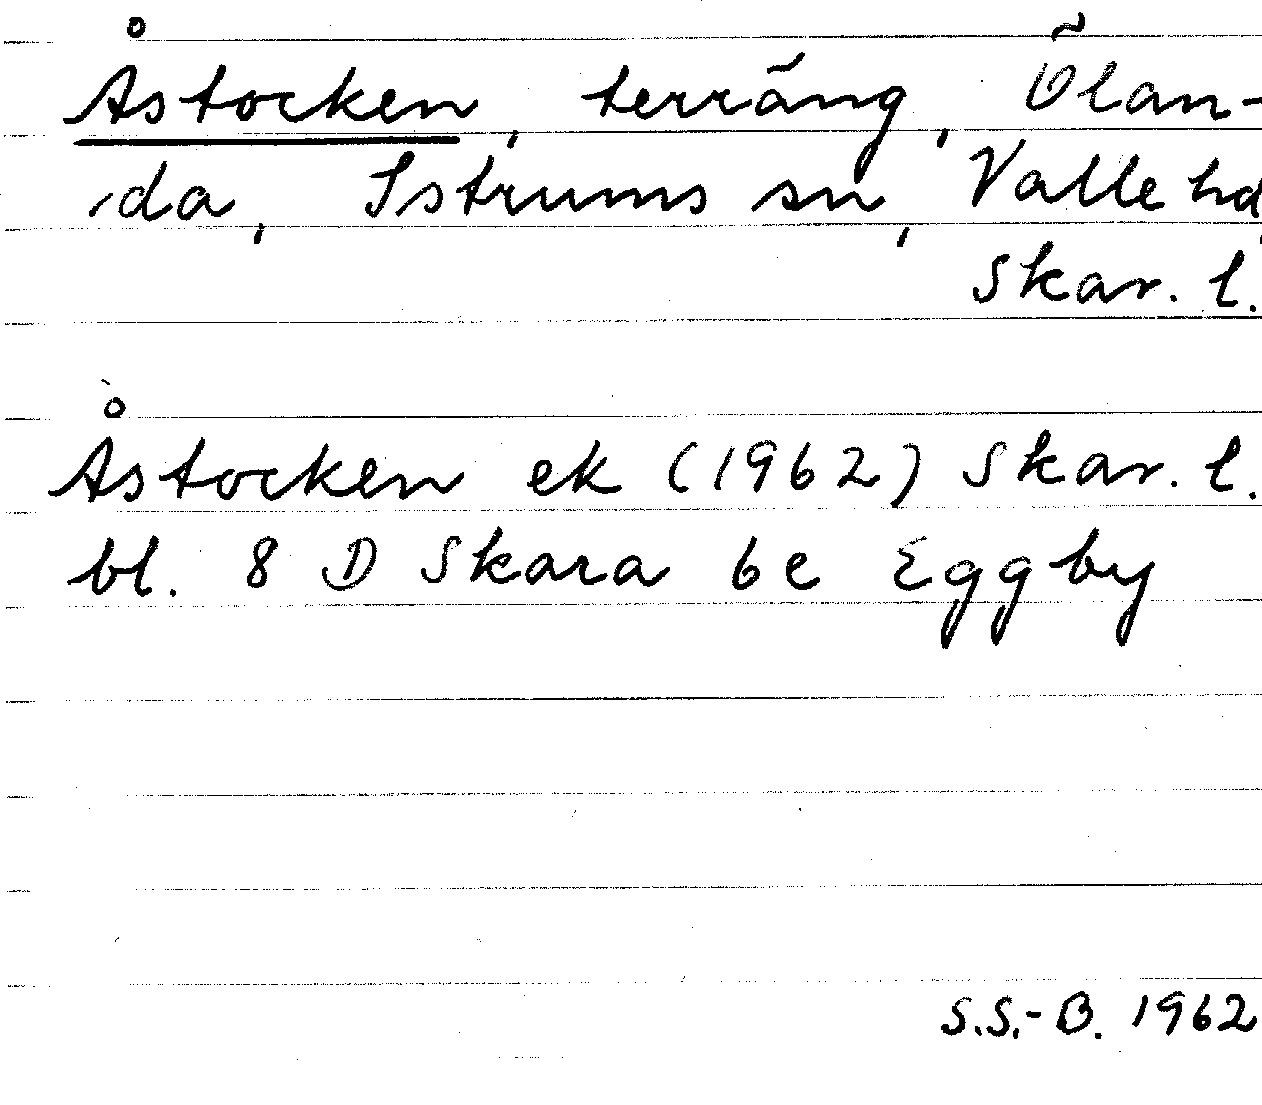 Åstocken, terräng, Ölan-
da, Istrums sn, Valle hd,
Skar. l.
Åstocken ek (1962) Skar. l.
bl. 8 D Skara 6e Eggby
S.S.-B. 1962